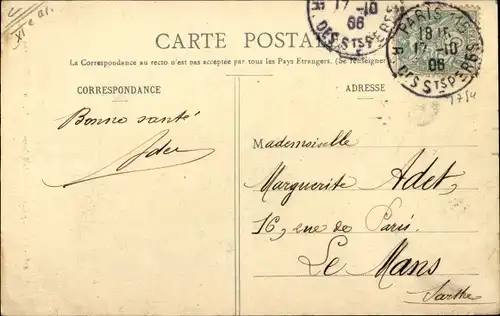 XIe ar.
17-10
06
R. DES STS PERES
PARIS
18 15
17-10
06
R. DES STS PERES
CARTE POSTALE
La Correspondance au recto n'est pas acceptée par tous les Pays Etrangers. (Se renseigner
CORRESPONDANCE
ADRESSE
1754
Bonne santé
Mademoiselle
Marguerite Adet,
16, rue de Paris.
Le Mans
Sarthe